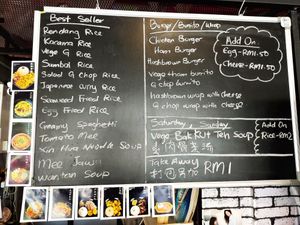 Best Seller
Rendang Rice
Karama Rice
Vege G Rice
Sambal Rice
Salad G Chop Rice
Japanese Curry Rice
Seaweed Fried Rice
Egg Fried Rice
Creamy Spaghetti
Tomato Mee
Noodle Soup
Mee Jawa
Wantan Soup
Burger/Burrito/Wrap
Chicken Burger
Ham Burger
Hashbrown Burger
Vege Ham burrito
G chop burrito
hashbrown wrap with cheese
G chop wrap with cheese
Add On
Egg - RM1.50
Cheese - RM1.50
Saturday, Sunday
Vege Bak Kut Teh Soup
素肉骨茶湯
Add On
Rice - RM2
Take Away
打包另加 RM1